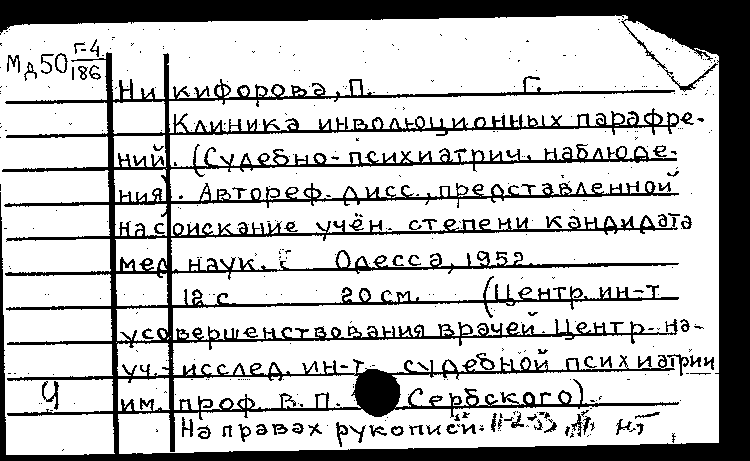 Мд50 Г-4/186
Никифорова, П. Г.
Клиника инволюционных парафре-
ний. (Судебно-психиатрич. наблюде-
ния). Автореф. дисс., представленной
на соискание учён. степени кандидата
мед. наук. Одесса, 1952.
12 с. 20 см. (Центр. ин-т
усовершенствования врачей. Центр. на-
уч.-исслед. ин-т судебной психиатрии
Ч им. проф. В. П. Сербского).
На правах рукописи. 11-2-53